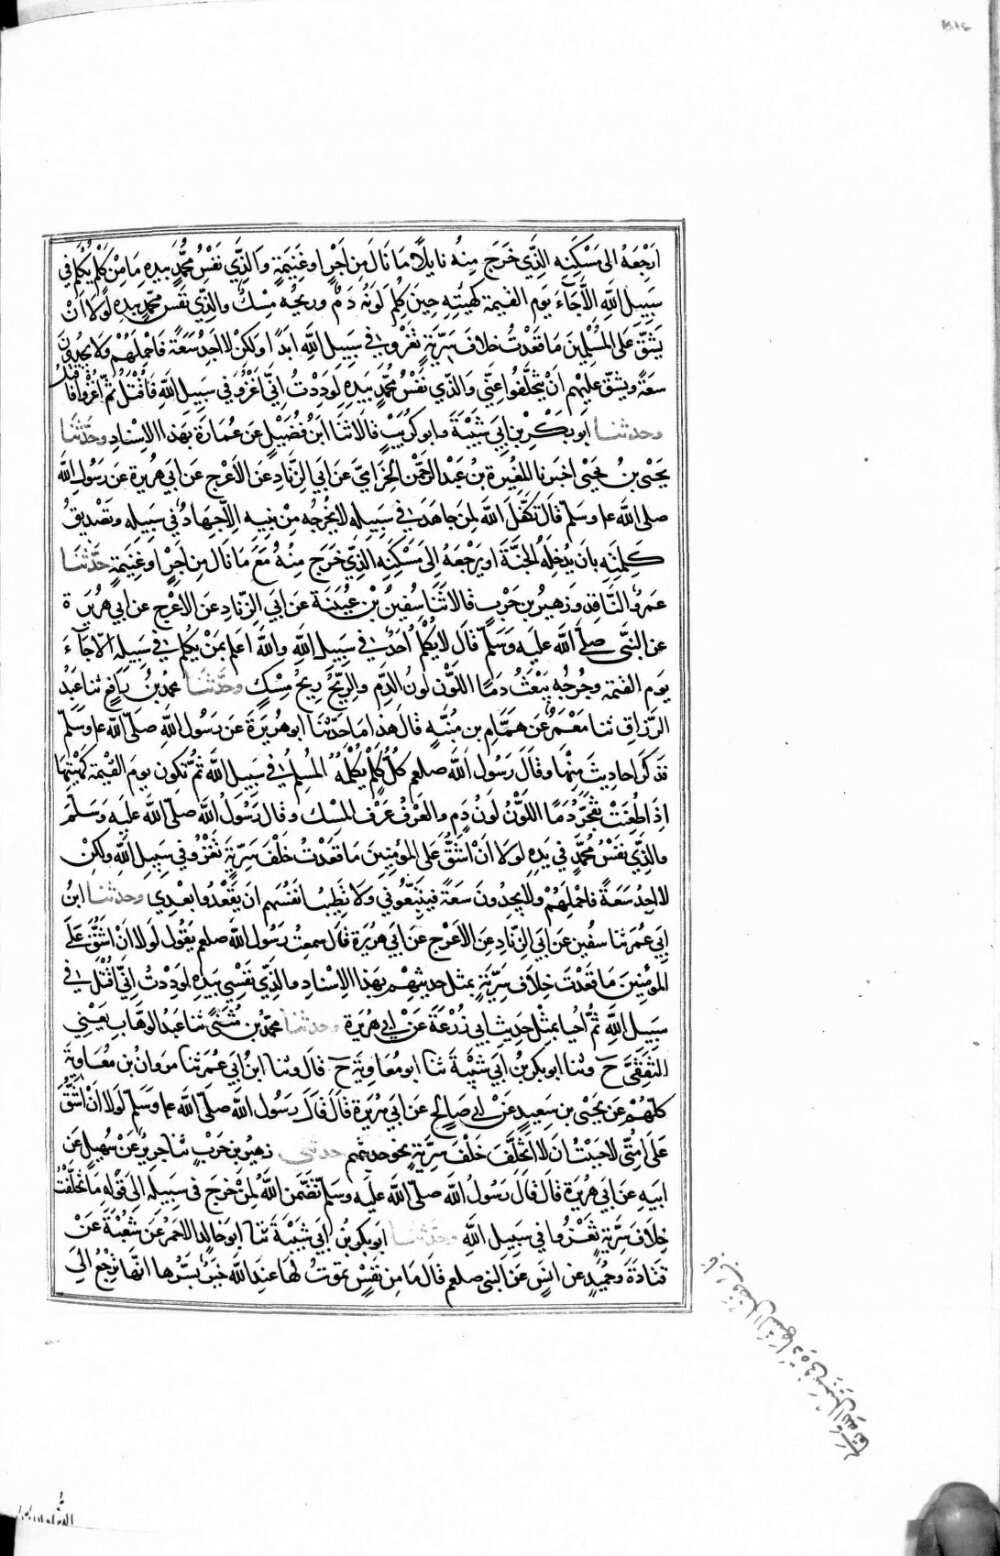 ارجعه الى مسكنه الذي خرج منه نايلا ما نال من اجر او غنيمة والذي نفس محمد بيده ما من كلم يكلم في
سبيل الله الا جاء يوم القيمة كهيئته حين كلم لونه دم وريحه مسك والذي نفس محمد بيده لولا ان
يشق على المسلمين ما قعدت خلاف سرية تغزو في سبيل الله ابدا ولكن لا اجد سعة فاحملهم ولا يجدون
سعة ويشق عليهم ان يتخلفوا عني والذي نفس محمد بيده لوددت اني اغزو في سبيل الله فاقتل ثم اغزو فاقتل
وحدثنا ابو بكر بن ابي شيبة وابو كريب قالا ثنا ابن فضيل عن عمارة بهذا الاسناد وحدثنا
يحيى بن يحيى اخبرنا المغيرة بن عبد الرحمن الحزامي عن ابي الزناد عن الاعرج عن ابي هريرة عن رسول الله
صلى الله عله وسلم قال تكفل الله لمن جاهد في سبيله لا يخرجه من بيته الا جهاد في سبيله وتصديق
كلمته بان يدخله الجنة او يرجعه الى مسكنه الذي خرج منه مع ما نال من اجر او غنيمة حدثنا
عمرو الناقد وزهير بن حرب قالا ثنا سفين بن عيينة عن ابي الزناد عن الاعرج عن ابي هريرة
عن النبي صلى الله عليه وسلم قال لا يكلم احد في سبيل الله والله اعلم بمن يكلم في سبيله الا جاء
يوم القيمة وجرحه يثعب دما اللون لون الدم والريح ريح مسك وحدثنا محمد بن رافع ثنا عبد
الرزاق ثنا معمر عن همام بن منبه قال هذا ما حدثنا ابو هريرة عن رسول الله صلى الله عله وسلم
فذكر احاديث منها وقال رسول الله صلعم كل كلم يكلمه المسلم في سبيل الله ثم تكون يوم القيمة كهيئتها
اذا طعنت تفجر دما اللون لون دم والعرف عرف المسك وقال رسول الله صلى الله عليه وسلم
والذي نفس محمد في يده لولا ان اشق على المؤمنين ما قعدت خلف سرية تغزو في سبيل الله ولكن
لا اجد سعة فاحملهم ولا يجدون سعة فيتبعوني ولا تطيب انفسهم ان يقعدوا بعدي وحدثنا ابن
ابي عمر ثنا سفين عن ابي الزناد عن الاعرج عن ابي هريرة قال سمعت رسول الله صلعم يقول لولا ان اشق على
المؤمنين ما قعدت خلاف سرية بمثل حديثهم بهذا الاسناد والذي نفسي بيده لوددت اني اقتل في
سبيل الله ثم احيا بمثل حديث ابي زرعة عن ابي هريرة وحدثنا محمد بن مثنى ثنا عبد الوهاب يعني
الثقفي ح وثنا ابو بكر بن ابي شيبة ثنا ابو معاوية ح قال وثنا ابن ابي عمر ثنا مروان بن معاوية
كلهم عن يحيى بن سعيد عن ابي صالح عن ابي هريرة قال قال رسول الله صلى الله عله وسلم لولا ان اشق
على امتي لاحببت ان لا اتخلف خلف سرية نحو حديثهم حدثني زهير بن حرب ثنا جرير عن سهيل عن
ابيه عن ابي هريرة قال قال رسول الله صلى الله عليه وسلم تضمن الله لمن خرج في سبيله الى قوله ما تخلفت
خلاف سرية تغزوا في سبيل الله وحدثنا ابو بكر بن ابي شيبة ثنا ابو خالد الاحمر عن شعبة عن
قتادة وحميد عن انس عن النبي صلعم قال ما من نفس تموت لها عند الله خير يسرها انها ترجع الى
باب فضل الشهادة في سبيل الله تعالى